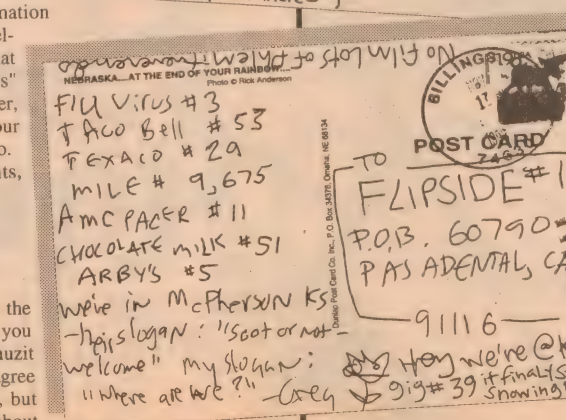 mation
el-
at
s"
er,
our
o.
ts,
the
you
uzit
gree
, but
No Film Lots of phlem
NEBRASKA....AT THE END OF YOUR RAINBOW....
Photo © Rick Anderson
FlU Virus #3
TACo Bell #53
TEXACO #29
MILE# 9,675
AMC PACER #11
CHOCOLATE MILK #51
ARBY'S #5
we're in McPherson KS
their slogan: "Scot or not -
welcome" my slogan:
"where are we?" -Greg
Dunlap Post Card Co. Inc., P.O. Box 34378, Omaha, NE 68134
BILLINGS
POST CARD
TO
FLIPSIDE #1
P.O.B. 60790
PASADENTAL, CA
91116
Hey we're @
gig# 39 it finalyS
Snowing